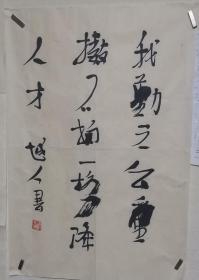 我勸天公重
擻不拘一格降
人才 人書